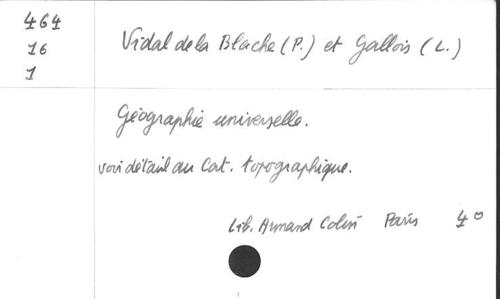 464
16
1
Vidal de la Blache (P.) et Gallois (L.)
Géographie universelle.
voir détail au Cat. topographique.
Lib. Armand Colin Paris 4°